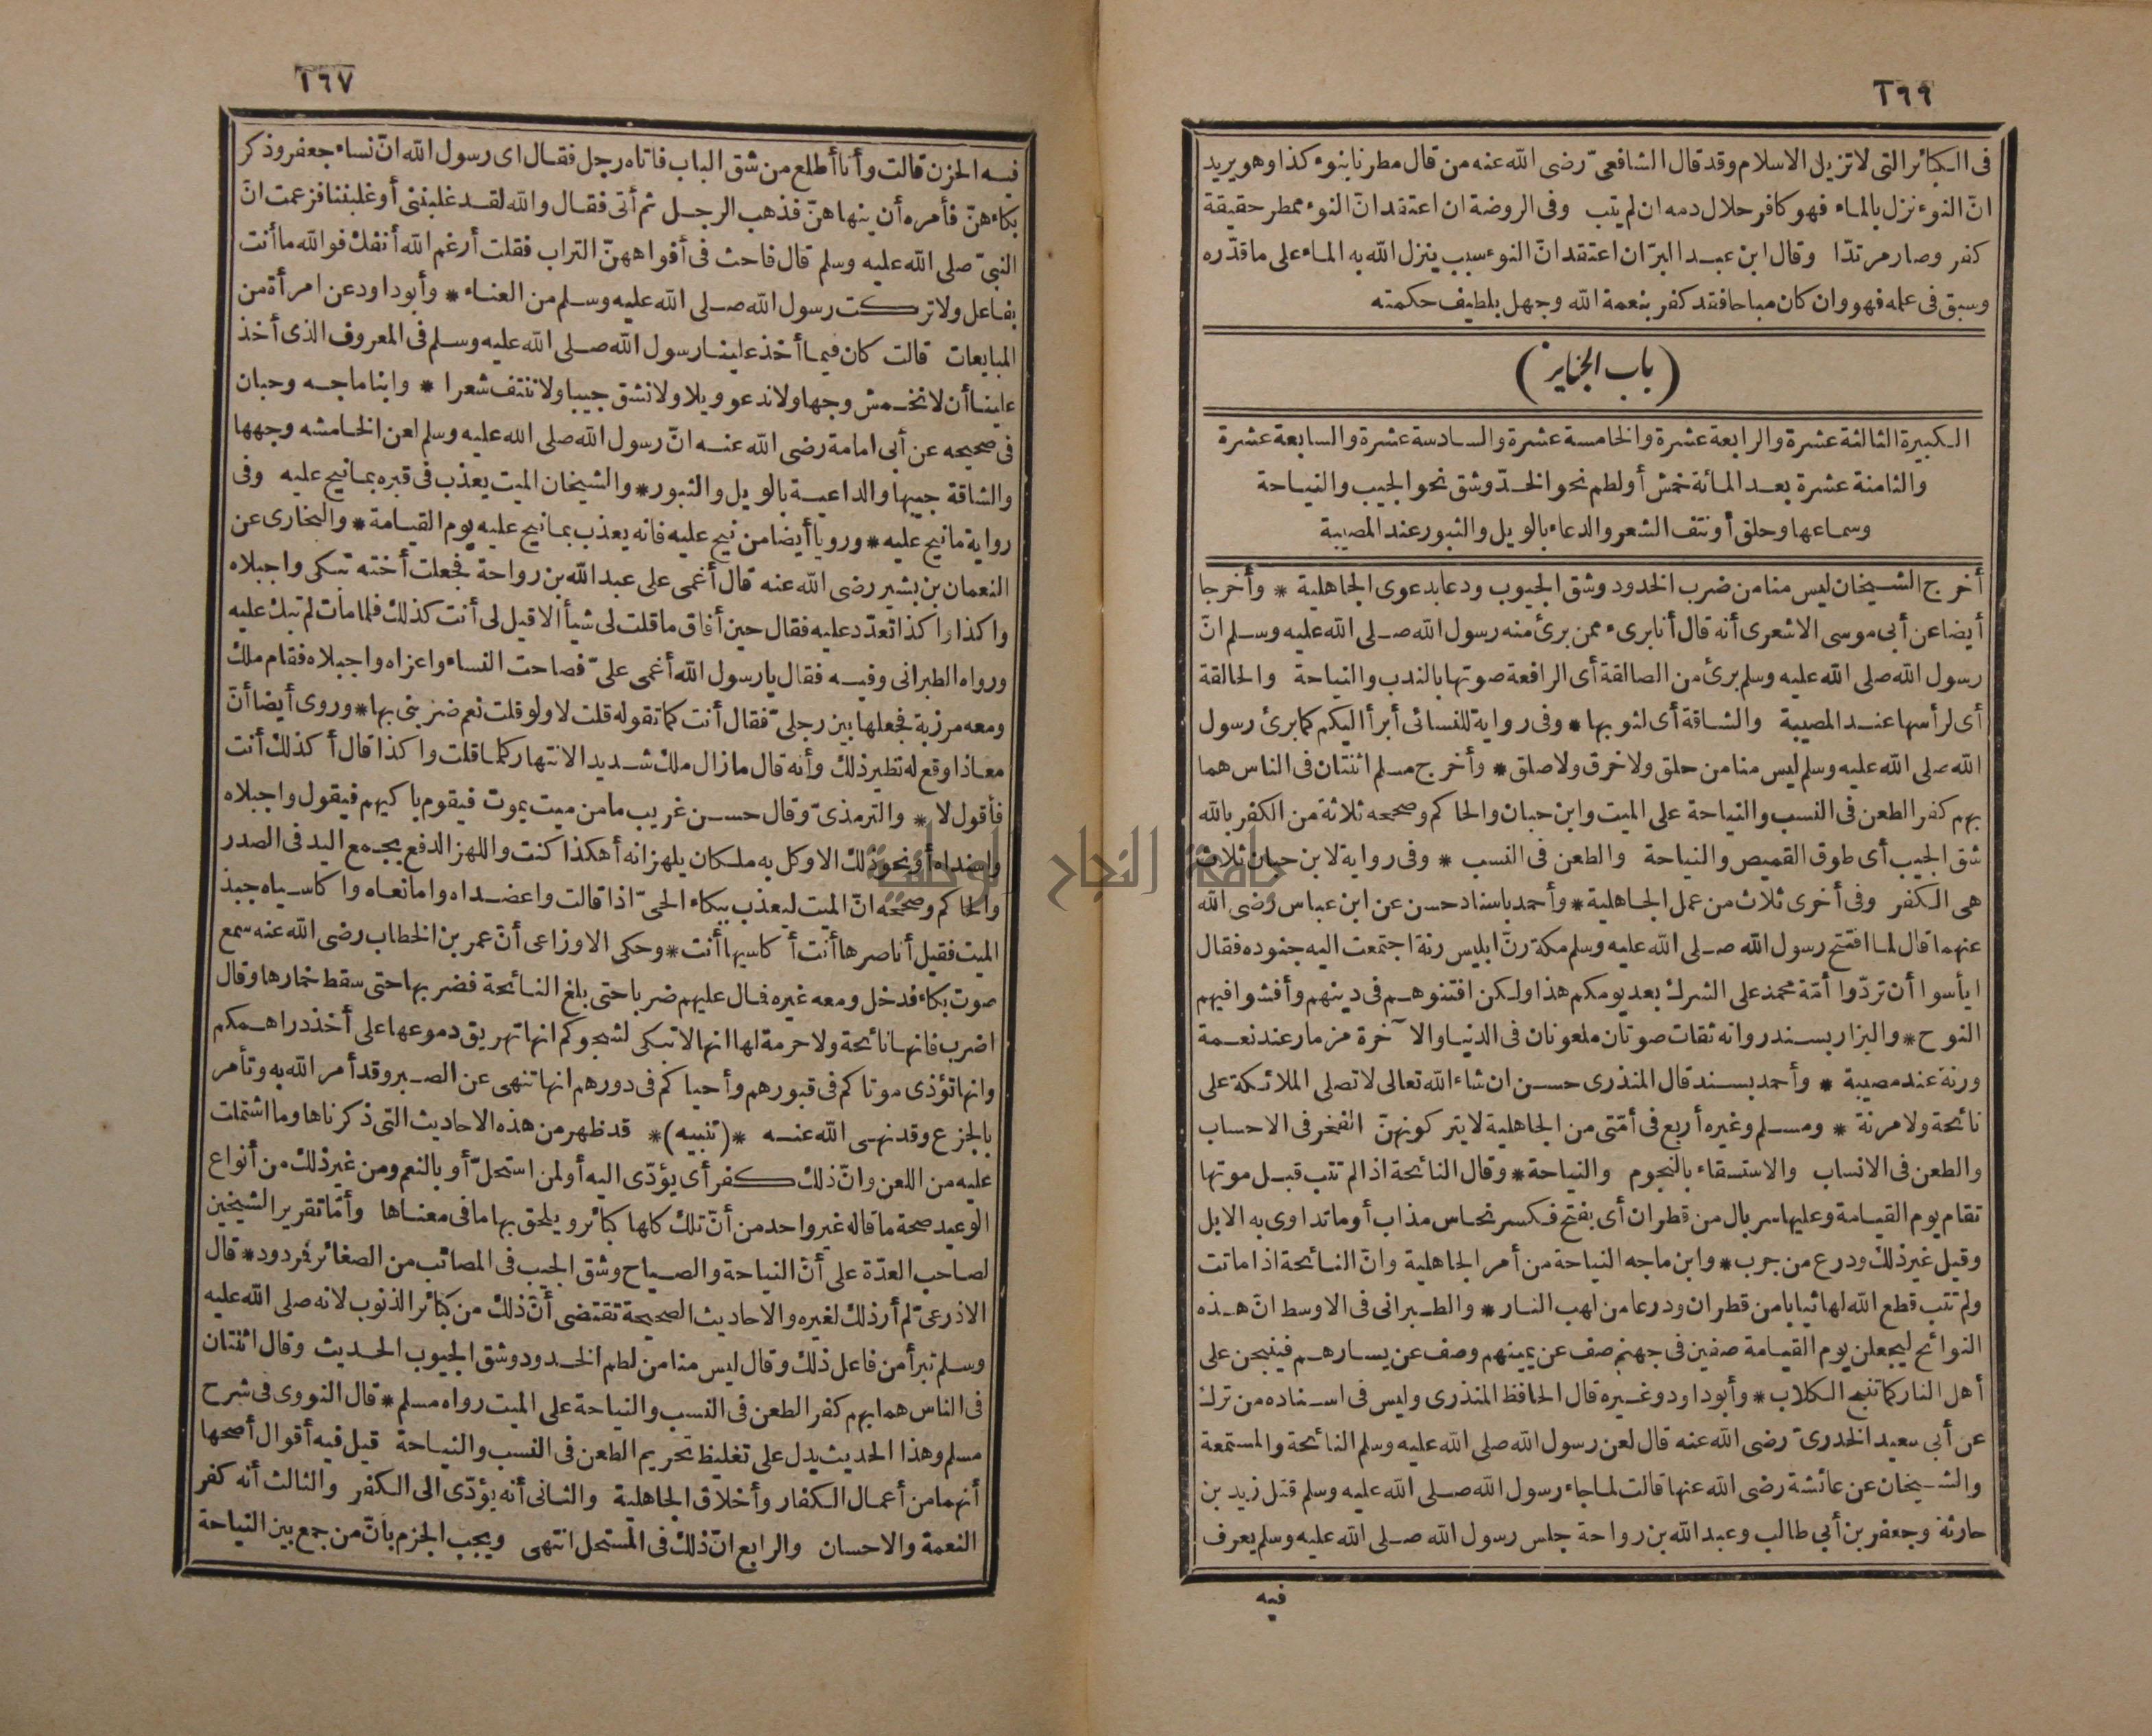 ١٦٦
فى الكبائر التى لا تزيل الاسلام وقد قال الشافعىّ رضى الله عنه من قال مطرنا بنوء كذا وهو يريد
انّ النوء نزل بالماء فهو كافر حلال دمه ان لم يتب وفى الروضة ان اعتقد انّ النوء ممطر حقيقة
كفر وصار مرتدّا وقال ابن عبد البرّ ان اعتقد انّ النوء سبب ينزل الله به الماء على ما قدّره
وسبق فى علمه فهو وان كان مباحا فقد كفر بنعمة الله وجهل بلطيف حكمته
(باب الجنايز)
الكبيرة الثالثة عشرة والرابعة عشرة والخامسة عشرة والسادسة عشرة والسابعة عشرة
والثامنة عشرة بعد المائة خمش أو لطم نحو الخدّ وشق نحو الجيب والنياحة
وسماعها وحلق أو نتف الشعر والدعاء بالويل والثبور عند المصيبة
أخرج الشيخان ليس منا من ضرب الخدود وشق الجيوب ودعا بدعوى الجاهلية * وأخرجا
أيضا عن أبى موسى الاشعرى أنه قال أنا برىء ممن برئ منه رسول الله صلى الله عليه وسلم انّ
رسول الله صلى الله عليه وسلم برئ من الصالقة أى الرافعة صوتها بالندب والنياحة والحالقة
أى لرأسها عند المصيبة والشاقة أى لثوبها * وفى رواية للنسائى أبرأ اليكم كما برئ رسول
الله صلى الله عليه وسلم ليس منا من حلق ولا خرق ولا صلق * وأخرج مسلم اثنتان فى الناس هما
بهم كفر الطعن فى النسب والنياحة على الميت وابن حبان والحاكم وصححه ثلاثة من الكفر بالله
شق الجيب أى طوق القميص والنياحة والطعن فى النسب * وفى رواية لابن حبان ثلاث
هى الكفر وفى أخرى ثلاث من عمل الجاهلية * وأحمد باسناد حسن عن ابن عباس رضى الله
عنهما قال لما افتتح رسول الله صلى الله عليه وسلم مكة رنّ ابليس رنة اجتمعت اليه جنوده فقال
ايأسوا أن تردّوا أمّة محمد على الشرك بعد يومكم هذا ولكن افتنوهم فى دينهم وأفشوا فيهم
النوح * والبزار بسند رواته ثقات صوتان ملعونان فى الدنيا والآخرة مزمار عند نعمة
ورنة عند مصيبة * وأحمد بسند قال المنذرى حسن ان شاء الله تعالى لا تصلى الملائكة على
نائحة ولا مرنة * ومسلم وغيره أربع فى أمّتى من الجاهلية لا يتركونهنّ الفخر فى الاحساب
والطعن فى الانساب والاستسقاء بالنجوم والنياحة * وقال النائحة اذا لم تتب قبل موتها
تقام يوم القيامة وعليها سربال من قطران أى بفتح فكسر نحاس مذاب أو ما تداوى به الابل
وقيل غير ذلك ودرع من جرب * وابن ماجه النياحة من أمر الجاهلية وانّ النائحة اذا ماتت
ولم تتب قطع الله لها ثيابا من قطران ودرعا من لهب النار * والطبرانى فى الاوسط انّ هذه
النوائح ليجعلن يوم القيامة صفين فى جهنم صف عن يمينهم وصف عن يسارهم فينبحن على
أهل النار كما تنبح الكلاب * وأبو داود وغيره قال الحافظ المنذرى وليس فى اسناده من ترك
عن أبى سعيد الخدرىّ رضى الله عنه قال لعن رسول الله صلى الله عليه وسلم النائحة والمستمعة
والشيخان عن عائشة رضى الله عنها قالت لما جاء رسول الله صلى الله عليه وسلم قتل زيد بن
حارثة وجعفر بن أبى طالب وعبد الله بن رواحة جلس رسول الله صلى الله عليه وسلم يعرف
فيه
١٦٧
فيه الحزن قالت وأنا أطلع من شق الباب فاتاه رجل فقال اى رسول الله انّ نساء جعفر وذكر
بكاءهنّ فأمره أن ينهاهنّ فذهب الرجل ثم أتى فقال والله لقد غلبننى أو غلبننا فزعمت انّ
النبىّ صلى الله عليه وسلم قال فاحث فى أفواههنّ التراب فقلت أرغم الله أنفك فوالله ما أنت
بفاعل ولا تركت رسول الله صلى الله عليه وسلم من العناء * وأبو داود عن امرأة من
المبايعات قالت كان فيما أخذ علينا رسول الله صلى الله عليه وسلم فى المعروف الذى أخذ
علينا أن لا نخمش وجها ولا ندعو ويلا ولا نشق جيبا ولا ننتف شعرا * وابنا ماجه وحبان
فى صحيحه عن أبى امامة رضى الله عنه انّ رسول الله صلى الله عليه وسلم لعن الخامشه وجهها
والشاقة جيبها والداعية بالويل والثبور * والشيخان الميت يعذب فى قبره بما نيح عليه وفى
رواية ما نيح عليه * ورويا أيضا من نيح عليه فانه يعذب بما نيح عليه يوم القيامة * والبخارى عن
النعمان بن بشير رضى الله عنه قال أغمى على عبد الله بن رواحة فجعلت أخته تبكى واجبلاه
واكذا واكذا تعدّد عليه فقال حين أفاق ما قلت لى شيأ الا قيل لى أنت كذلك فلما مات لم تبك عليه
ورواه الطبرانى وفيه فقال يا رسول الله أغمى علىّ فصاحت النساء واعزاه واجبلاه فقام ملك
ومعه مرزبة فجعلها بين رجلىّ فقال أنت كما تقوله قلت لا ولو قلت نعم ضربنى بها * وروى أيضا أنّ
معاذا وقع له نظير ذلك وأنه قال ما زال ملك شديد الانتهار كلما قلت واكذا قال أكذلك أنت
فأقول لا * والترمذىّ وقال حسن غريب ما من ميت يموت فيقوم باكيهم فيقول واجبلاه
واسنداه أو نحو ذلك الا وكل به ملكان يلهزانه أهكذا كنت واللهز الدفع بجمع اليد فى الصدر
والحاكم وصححه انّ الميت ليعذب ببكاء الحىّ اذا قالت واعضداه وامانعاه واكاسياه جبذ
الميت فقيل أناصرها أنت أكاسيها أنت * وحكى الاوزاعى أنّ عمر بن الخطاب رضى الله عنه سمع
صوت بكاء فدخل ومعه غيره فمال عليهم ضربا حتى بلغ النائحة فضربها حتى سقط خمارها وقال
اضرب فانها نائحة ولا حرمة لها انها لا تبكى لشجوكم انها تهريق دموعها على أخذ دراهمكم
وانها تؤذى موتاكم فى قبورهم وأحياكم فى دورهم انها تنهى عن الصبر وقد أمر الله به وتأمر
بالجزع وقد نهى الله عنه * (تنبيه) * قد ظهر من هذه الاحاديث التى ذكرناها وما اشتملت
عليه من اللعن وانّ ذلك كفر أى يؤدّى اليه أو لمن استحلّ أو بالنعم ومن غير ذلك من أنواع
الوعيد صحة ما قاله غير واحد من أنّ تلك كلها كبائر ويلحق بها ما فى معناها وأمّا تقرير الشيخين
لصاحب العدّة على أنّ النياحة والصياح وشق الجيب فى المصائب من الصغائر فمردود * قال
الاذرعىّ لم أر ذلك لغيره والاحاديث الصحيحة تقتضى أنّ ذلك من كبائر الذنوب لانه صلى الله عليه
وسلم تبرأ من فاعل ذلك وقال ليس منا من لطم الخدود وشق الجيوب الحديث وقال اثنتان
فى الناس هما بهم كفر الطعن فى النسب والنياحة على الميت رواه مسلم * قال النووى فى شرح
مسلم وهذا الحديث يدل على تغليظ تحريم الطعن فى النسب والنياحة قيل فيه أقوال أصحها
أنهما من أعمال الكفار وأخلاق الجاهلية والثانى أنه يؤدّى الى الكفر والثالث أنه كفر
النعمة والاحسان والرابع انّ ذلك فى المستحل انتهى ويجب الجزم بانّ من جمع بين النياحة
جامعة النجاح الوطنية